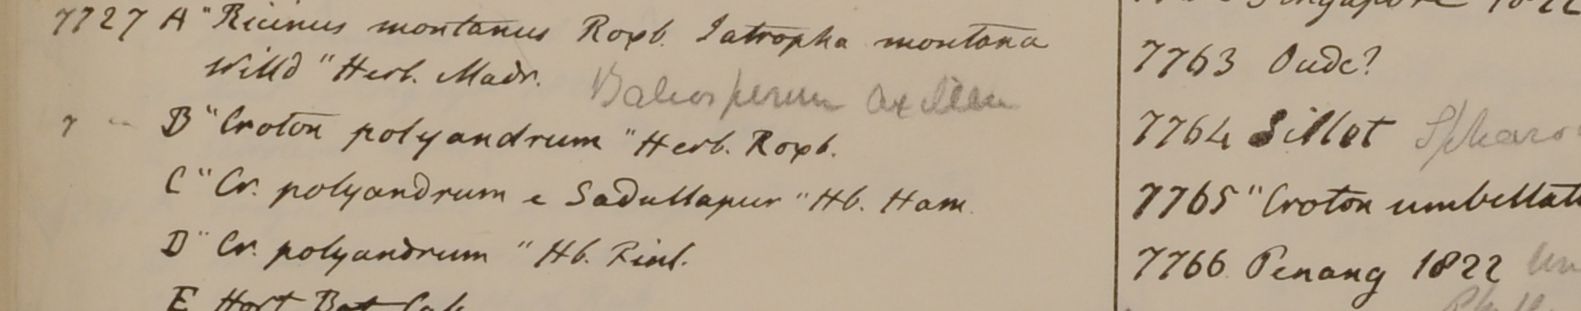 7727 A "Ricinus montanus Roxb. Iatropha montana
Willd" Herb. Madr. Baliospermum axillare
" " B "Croton polyandrum" Herb. Roxb.
C "Cr. polyandrum e Sadullapur" Hb. Ham.
D "Cr. polyandrum" Hb. Finl.
E Hort Bot Calc
Singapore 1822
7763 Oude?
7764 Sillet
7765 "Croton umbellat
7766 Penang 1822